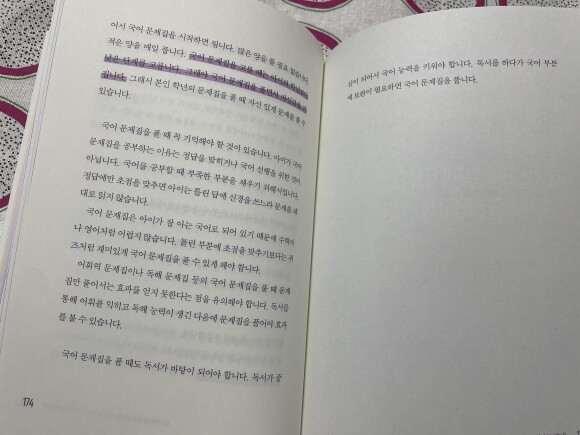 어서 국어 문제집을 시작하면 됩니다. 많은 양을 풀 필요 없습니다.
적은 양을 매일 풉니다. 국어 문제집을 고를 때는 아이의
낮은 단계를 고릅니다. 그래야 국어 문제집을 풀면서 자신감을
깁니다. 그래서 본인 학년의 문제집을 풀 때 자신 있게 문제를 풀 수
있습니다.
국어 문제집을 풀 때 꼭 기억해야 할 것이 있습니다. 아이가 국어
문제집을 공부하는 이유는 정답을 맞히거나 국어 선행을 위한 것이
아닙니다. 국어를 공부할 때 부족한 부분을 채우기 위해서입니다.
정답에만 초점을 맞추면 아이는 틀린 답에 신경을 쓰느라 문제를 제
대로 읽지 않습니다.
국어 문제집은 아이가 잘 아는 국어로 되어 있기 때문에 수학이
나 영어처럼 어렵지 않습니다. 틀린 부분에 초점을 맞추기보다는 퀴
즈처럼 재미있게 국어 문제집을 풀 수 있게 해야 합니다.
어휘력 문제집이나 독해 문제집 등의 국어 문제집을 풀 때 문제
집만 풀어서는 효과를 얻지 못한다는 점을 유의해야 합니다. 독서를
통해 어휘를 익히고 독해 능력이 생긴 다음에 문제집을 풀어야 효과
를 볼 수 있습니다.
국어 문제집을 풀 때도 독서가 바탕이 되어야 합니다. 독서가 중
174
심이 되어서 국어 능력을 키워야 합니다. 독서를 하다가 국어 부분
에 보완이 필요하면 국어 문제집을 풉니다.